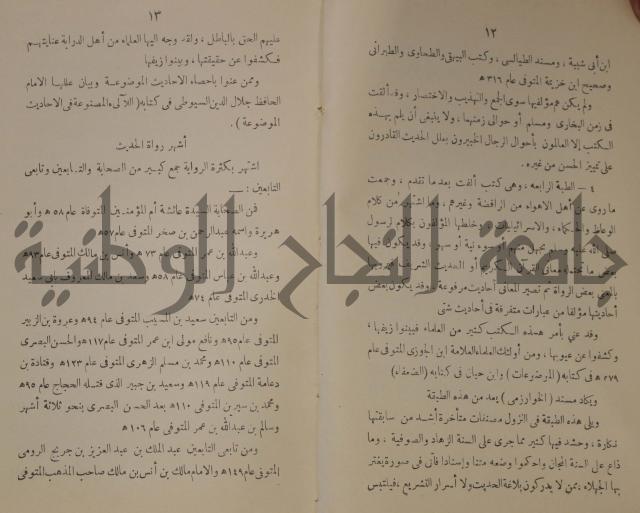 ١٢
ابن أبي شيبة ، ومسند الطيالسي ، وكتب البيهقي والطحاوي والطبراني
وصحيح ابن خزيمة المتوفى عام ٣١٦ ه
ولم يكن هم مؤلفيها سوى الجمع والتهذيب والاختصار ، وقد ألفت
في زمن البخاري ومسلم أو حوالي زمنهما ، ولا ينبغي أن يلم بهذه
الكتب إلا العالمون بأحوال الرجال الخبيرون بعلل الحديث القادرون
على تمييز الحسن من غيره .
٤ — الطبقة الرابعة ، وهي كتب ألفت بعد ما تقدم ، وجمعت
ما روى عن أهل الأهواء من الرافضة وغيرهم ، وما اشتهر من كلام
الوعاظ والحكماء ، والاسرائيليات ، وخلطها المؤلفون بكلام لرسول
الله عليه وسلم بجهل منهم أو سوء نية أو سهو ، وقد يكون فيها
بعض ما تحتمله معاني القرآن الكريم أو الحديث الشريف
بالمعنى بعض الرواة ثم تصير المعاني أحاديث مرفوعة ، وقد يكون بعض
أحاديثها مؤلفا من عبارات متفرقة في أحاديث شتى
وقد عني بأمر هذه الكتب كثير من العلماء فبينوا زيفها ،
وكشفوا عن عيوبها ، ومن أولئك العلماء العلامة ابن الجوزي المتوفى عام
٥٧٩ ه في كتابه ( الموضوعات ) وابن حبان في كتابه ( الضعفاء )
ويكاد مسند ( الخوارزمي ) يعد من هذه الطبقة
ويلى هذه الطبقة في النزول مصنفات متأخرة أشد من سابقتها
نكارة ، وحشد فيها كثير مما جرى على ألسنة الزهاد والصوفية ، وما
ذاع على ألسنة المجان وأحكموا وضعه متنا وإسنادا فأتى في صورة يغتر
بها الجهلاء ، ممن لا يدركون بلاغة الحديث ولا أسرار التشريع ، فيلتبس
١٣
عليهم الحق بالباطل ، ولقد وجه اليها العلماء من أهل الدراية عنايتهم
فكشفوا عن حقيقتها ، وبينوا زيفها
وممن عنوا باحصاء الاحاديث الموضوعة وبيان عللها الامام
الحافظ جلال الدين السيوطي في كتابه ( اللآلىء المصنوعة في الاحاديث
الموضوعة ) .
أشهر رواة الحديث
اشتهر بكثرة الرواية جمع كبير من الصحابة والتابعين وتابعي
التابعين : —
فمن الصحابة السيدة عائشة أم المؤمنين المتوفاة عام ٥٨ ه وأبو
هريرة واسمه عبدالرحمن بن صخر المتوفى عام ٥٧ ه
وعبدالله بن عمر المتوفى عام ٧٣ ه وأنس بن مالك المتوفى عام ٩٣ ه
وعبدالله بن عباس المتوفى عام ٥٨ ه وسعد بن مالك المعروف بأبي سعيد
الخدري المتوفى عام ٧٤ ه
ومن التابعين سعيد بن المسيب المتوفى عام ٩٤ ه وعروة بن الزبير
المتوفى عام ٩٥ ه ونافع مولى ابن عمر المتوفى عام ١١٧ ه والحسن البصرى
المتوفى عام ١١٠ ه ومحمد بن مسلم الزهرى المتوفى عام ١٢٣ ه وقتادة بن
دعامة المتوفى عام ١١٩ ه وسعيد بن جبير الذى قتله الحجاج عام ٩٥ ه
ومحمد بن سيرين المتوفى ١١٠ ه بعد الحسن البصرى بنحو ثلاثة أشهر
وسالم بن عبدالله بن عمر المتوفى عام ١٠٦ ه
ومن تابعي التابعين عبد الملك بن عبد العزيز بن جريج الرومى
المتوفى عام ١٤٩ ه والامام مالك بن أنس بن مالك صاحب المذهب المتوفى
جامعة النجاح الوطنية